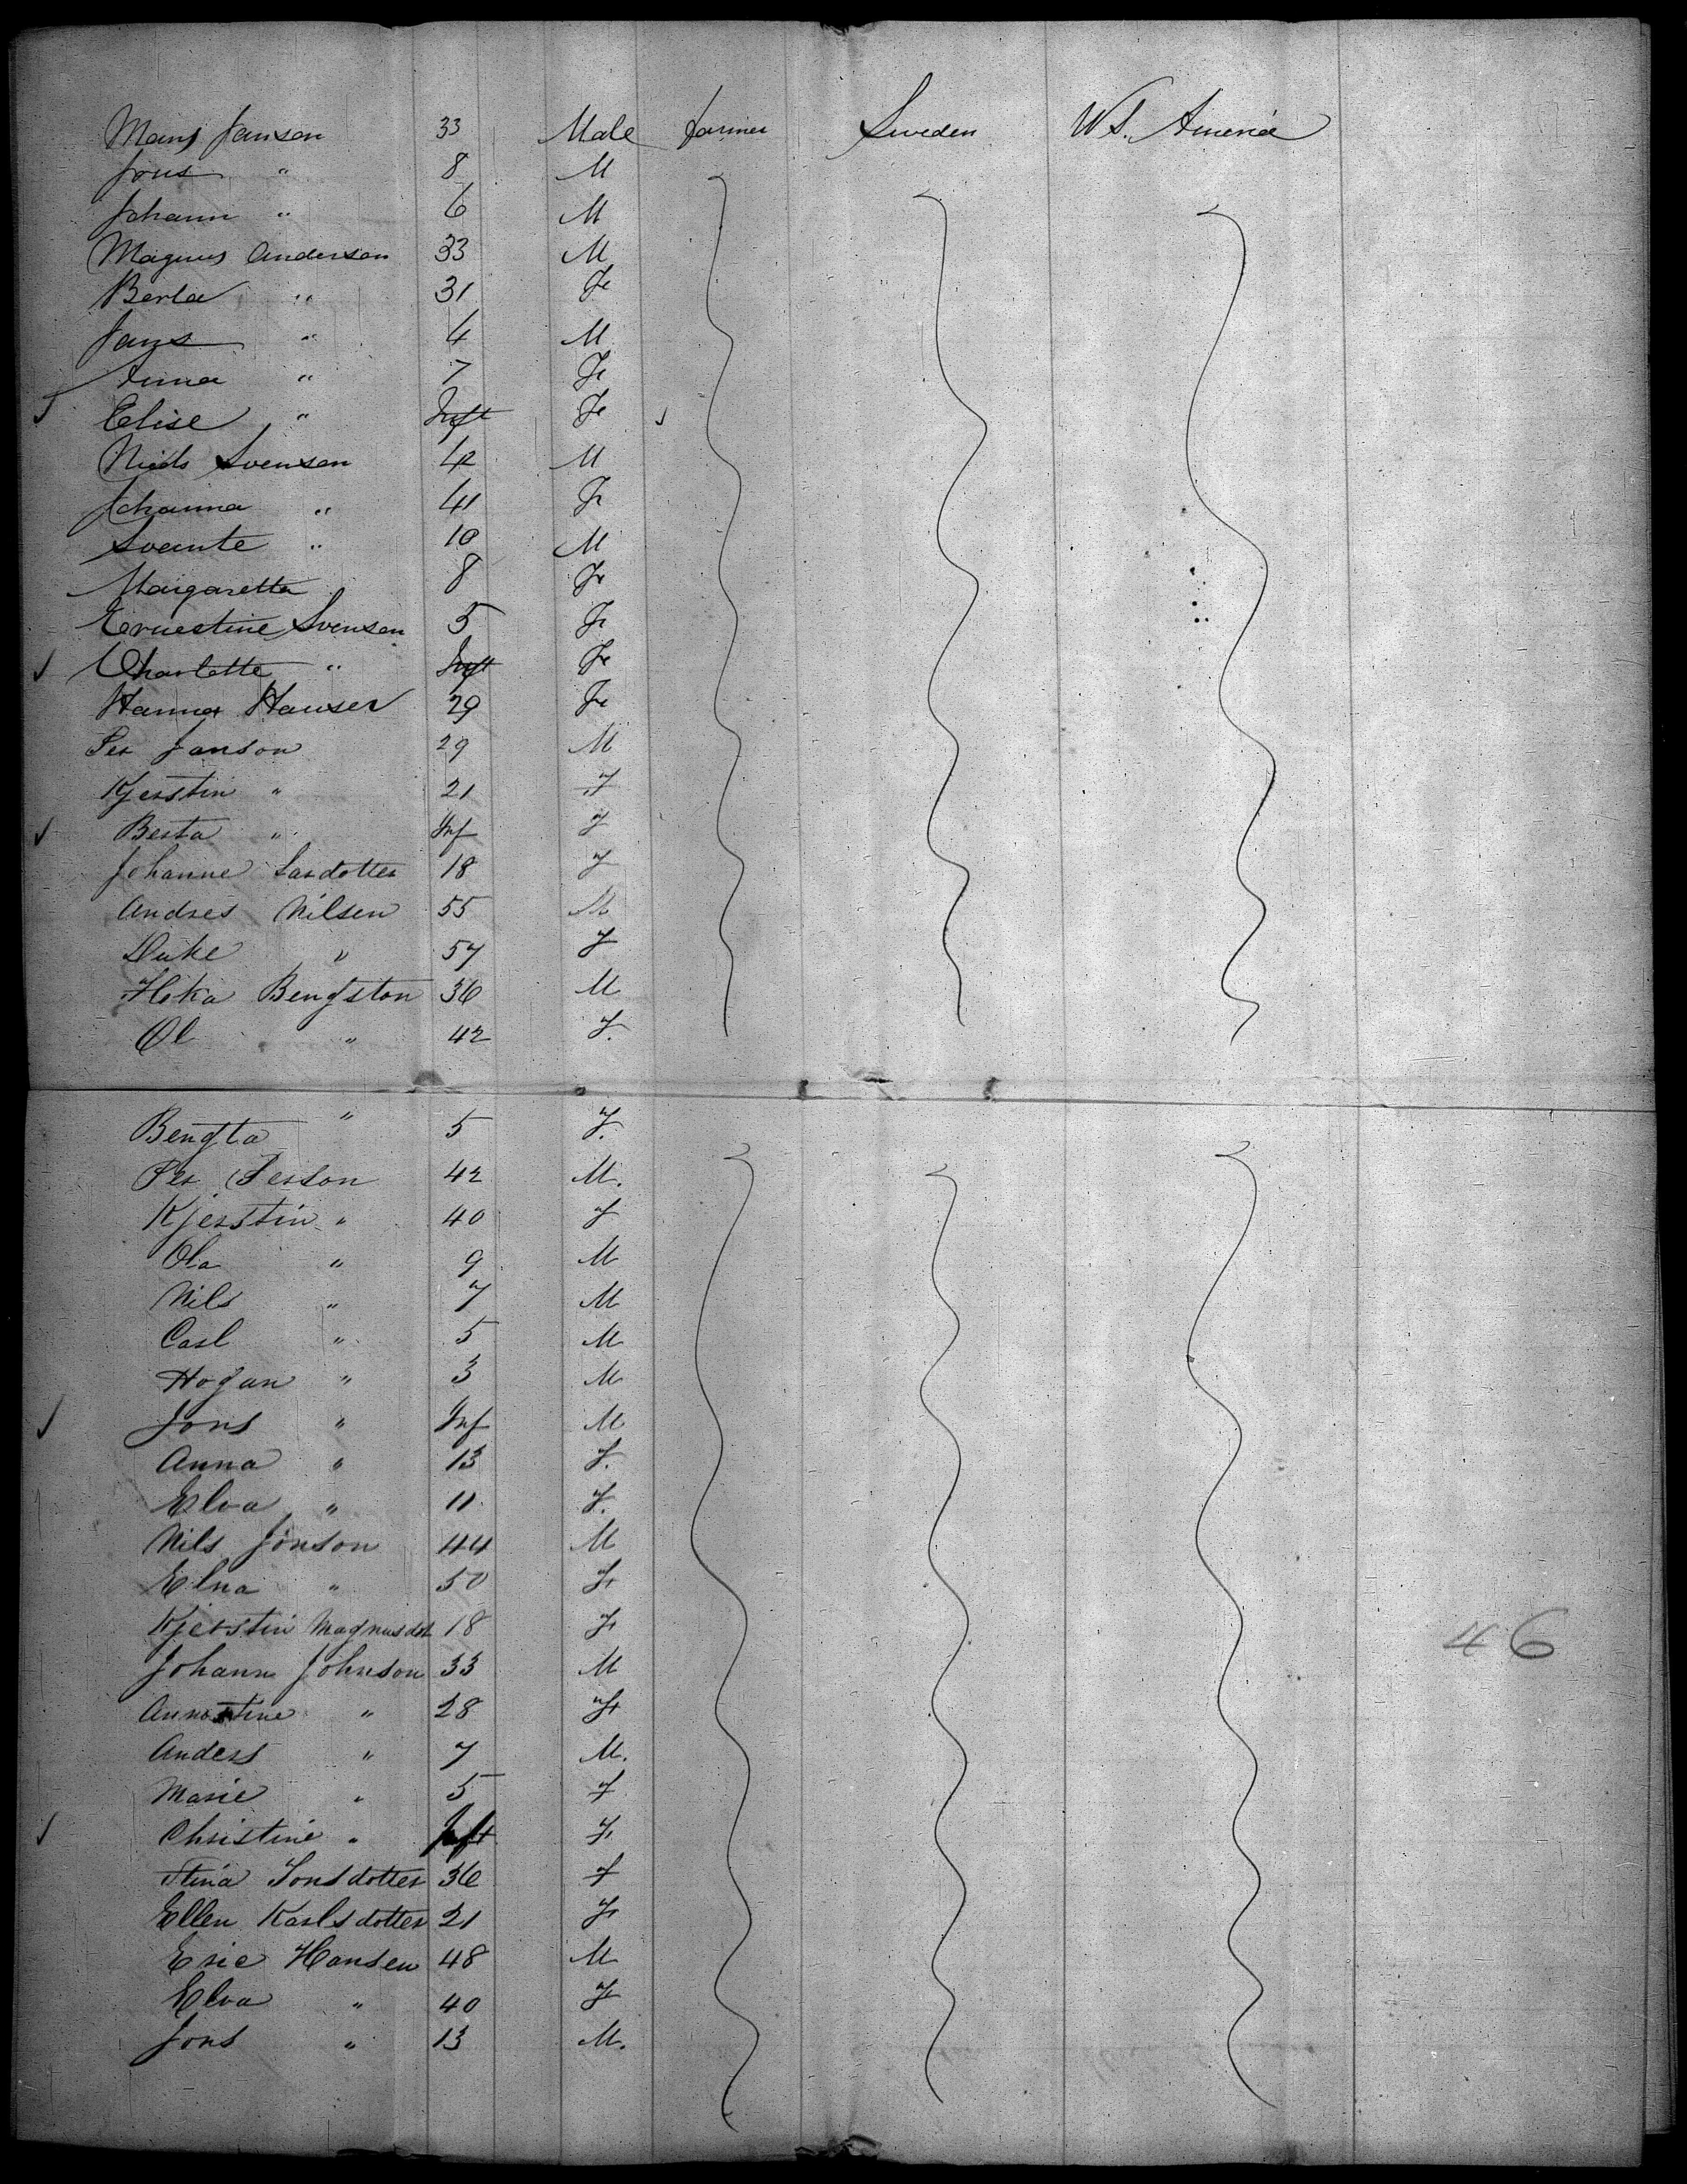 Mans Jansen 33 Male farmer Sweden U S. America
Jons " 8 M
Johann " 6 M
Magnus Andersen 33 M
Berta " 31 Fe
Jans " 4 M
Anna " 7 Fe
Elise " Inft Fe
Niels Svensen 42 M
Johanna " 41 Fe
Svante " 10 M
Margaretta 8 Fe
Ernestine Svensen 5 Fe
Charlotte " Inft Fe
Hanna Hauser 29 Fe
Per Janson 29 M
Kjerstin " 21 F
Berta " Inf F
Johanne Lardotter 18 F
Andres Nilsen 55 M
57 F
Bengston 36 M
Ol " 42 F.
Bengta " 5 F.
Per Person 42 M.
Kjerstin " 40 F
Ola " 9 M
Nils " 7 M
Carl " 5 M
Hogan " 3 M
Jons " Inf M
Anna " 13 F.
Elva " 11 F.
Nils Jonson 44 M
Elna " 50 Fe
Kjerstin Magnusdot 18 Fe
Johann Johnson 33 M
Annastine " 28 Fe
Anders " 7 M.
Marie " 5 F
Christine " Inft Fe
Stina Jonsdotter 36 F
Ellen Karlsdotter 21 Fe
Eric Hansen 48 M
Elva " 40 Fe
Jons " 13 M.
46